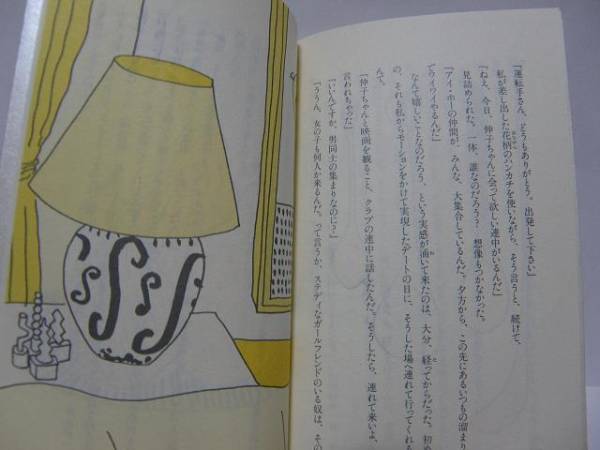 「運転手さん、どうもありがとう。出発して下さい」
私が差し出した花柄のハンカチを使いながら、そう言うと、続けて、
「ねえ、今日、伸子ちゃんに会って欲しい連中がいるんだ」
見詰められた。一体、誰なのだろう? 想像もつかなかった。
「アイ・ホーの仲間が、みんな、大集合しているんだ。夕方から、この先にあるいつもの溜まり
てワイワイやるんだ」
なんて嬉しいことなのだろう、という実感が湧いて来たのは、大分、経ってからだった。初め
の、それも私からモーションをかけて実現したデートの日に、そうした場へ連れて行ってくれる
んて。
「伸子ちゃんと映画を観ること、クラブの連中に話したんだ。そうしたら、連れて来いよ、
言われちゃった」
「いいんですか、男同士の集まりなのに?」
「ううん、女の子も何人か来るんだ。って言うか、ステディなガールフレンドのいる奴は、その